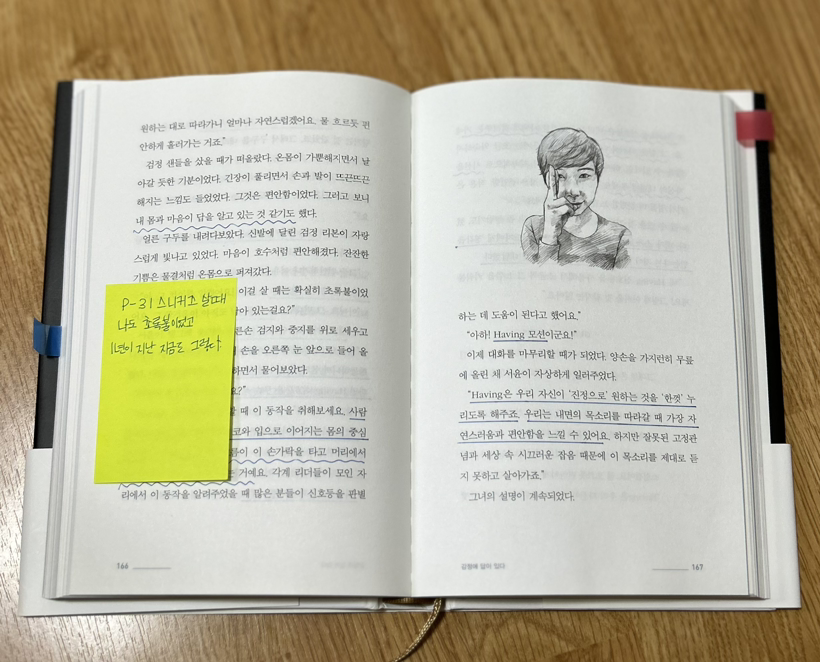 원하는 대로 따라가니 얼마나 자연스럽겠어요. 물 흐르듯 편
안하게 흘러가는 거죠."
검정 샌들을 샀을 때가 떠올랐다. 온몸이 가뿐해지면서 날
아갈 듯한 기분이었다. 긴장이 풀리면서 손과 발이 뜨끈뜨끈
해지는 느낌도 들었었다. 그것은 편안함이었다. 그러고 보니
내 몸과 마음이 답을 알고 있는 것 같기도 했다.
얼른 구두를 내려다보았다. 신발에 달린 검정 리본이 자랑
스럽게 빛나고 있었다. 마음이 호수처럼 편안해졌다. 잔잔한
기쁨은 물결처럼 온몸으로 퍼져갔다.
이걸 살 때는 확실히 초록불이었
있는걸요?"
검지와 중지를 위로 세우고
손을 오른쪽 눈 앞으로 들어 올
하면서 물어보았다.
요?"
때 이 동작을 취해보세요. 사람
코와 입으로 이어지는 몸의 중심
이 손가락을 타고 머리에서
는 거예요. 각계 리더들이 모인 자
리에서 이 동작을 알려주었을 때 많은 분들이 신호등을 판별
P-31 스니커즈 살때
나도 초록불이었고
1년이 지난 지금도 그렇다
166
하는 데 도움이 된다고 했어요."
"아하! Having 모션이군요!"
이제 대화를 마무리할 때가 되었다. 양손을 가지런히 무릎
에 올린 채 서윤이 자상하게 일러주었다.
"Having은 우리 자신이 '진정으로' 원하는 것을 '한껏' 누
리도록 해주죠. 우리는 내면의 목소리를 따라갈 때 가장 자
연스러움과 편안함을 느낄 수 있어요. 하지만 잘못된 고정관
념과 세상 속 시끄러운 잡음 때문에 이 목소리를 제대로 듣
지 못하고 살아가죠."
그녀의 설명이 계속되었다.
감정에 답이 있다
167